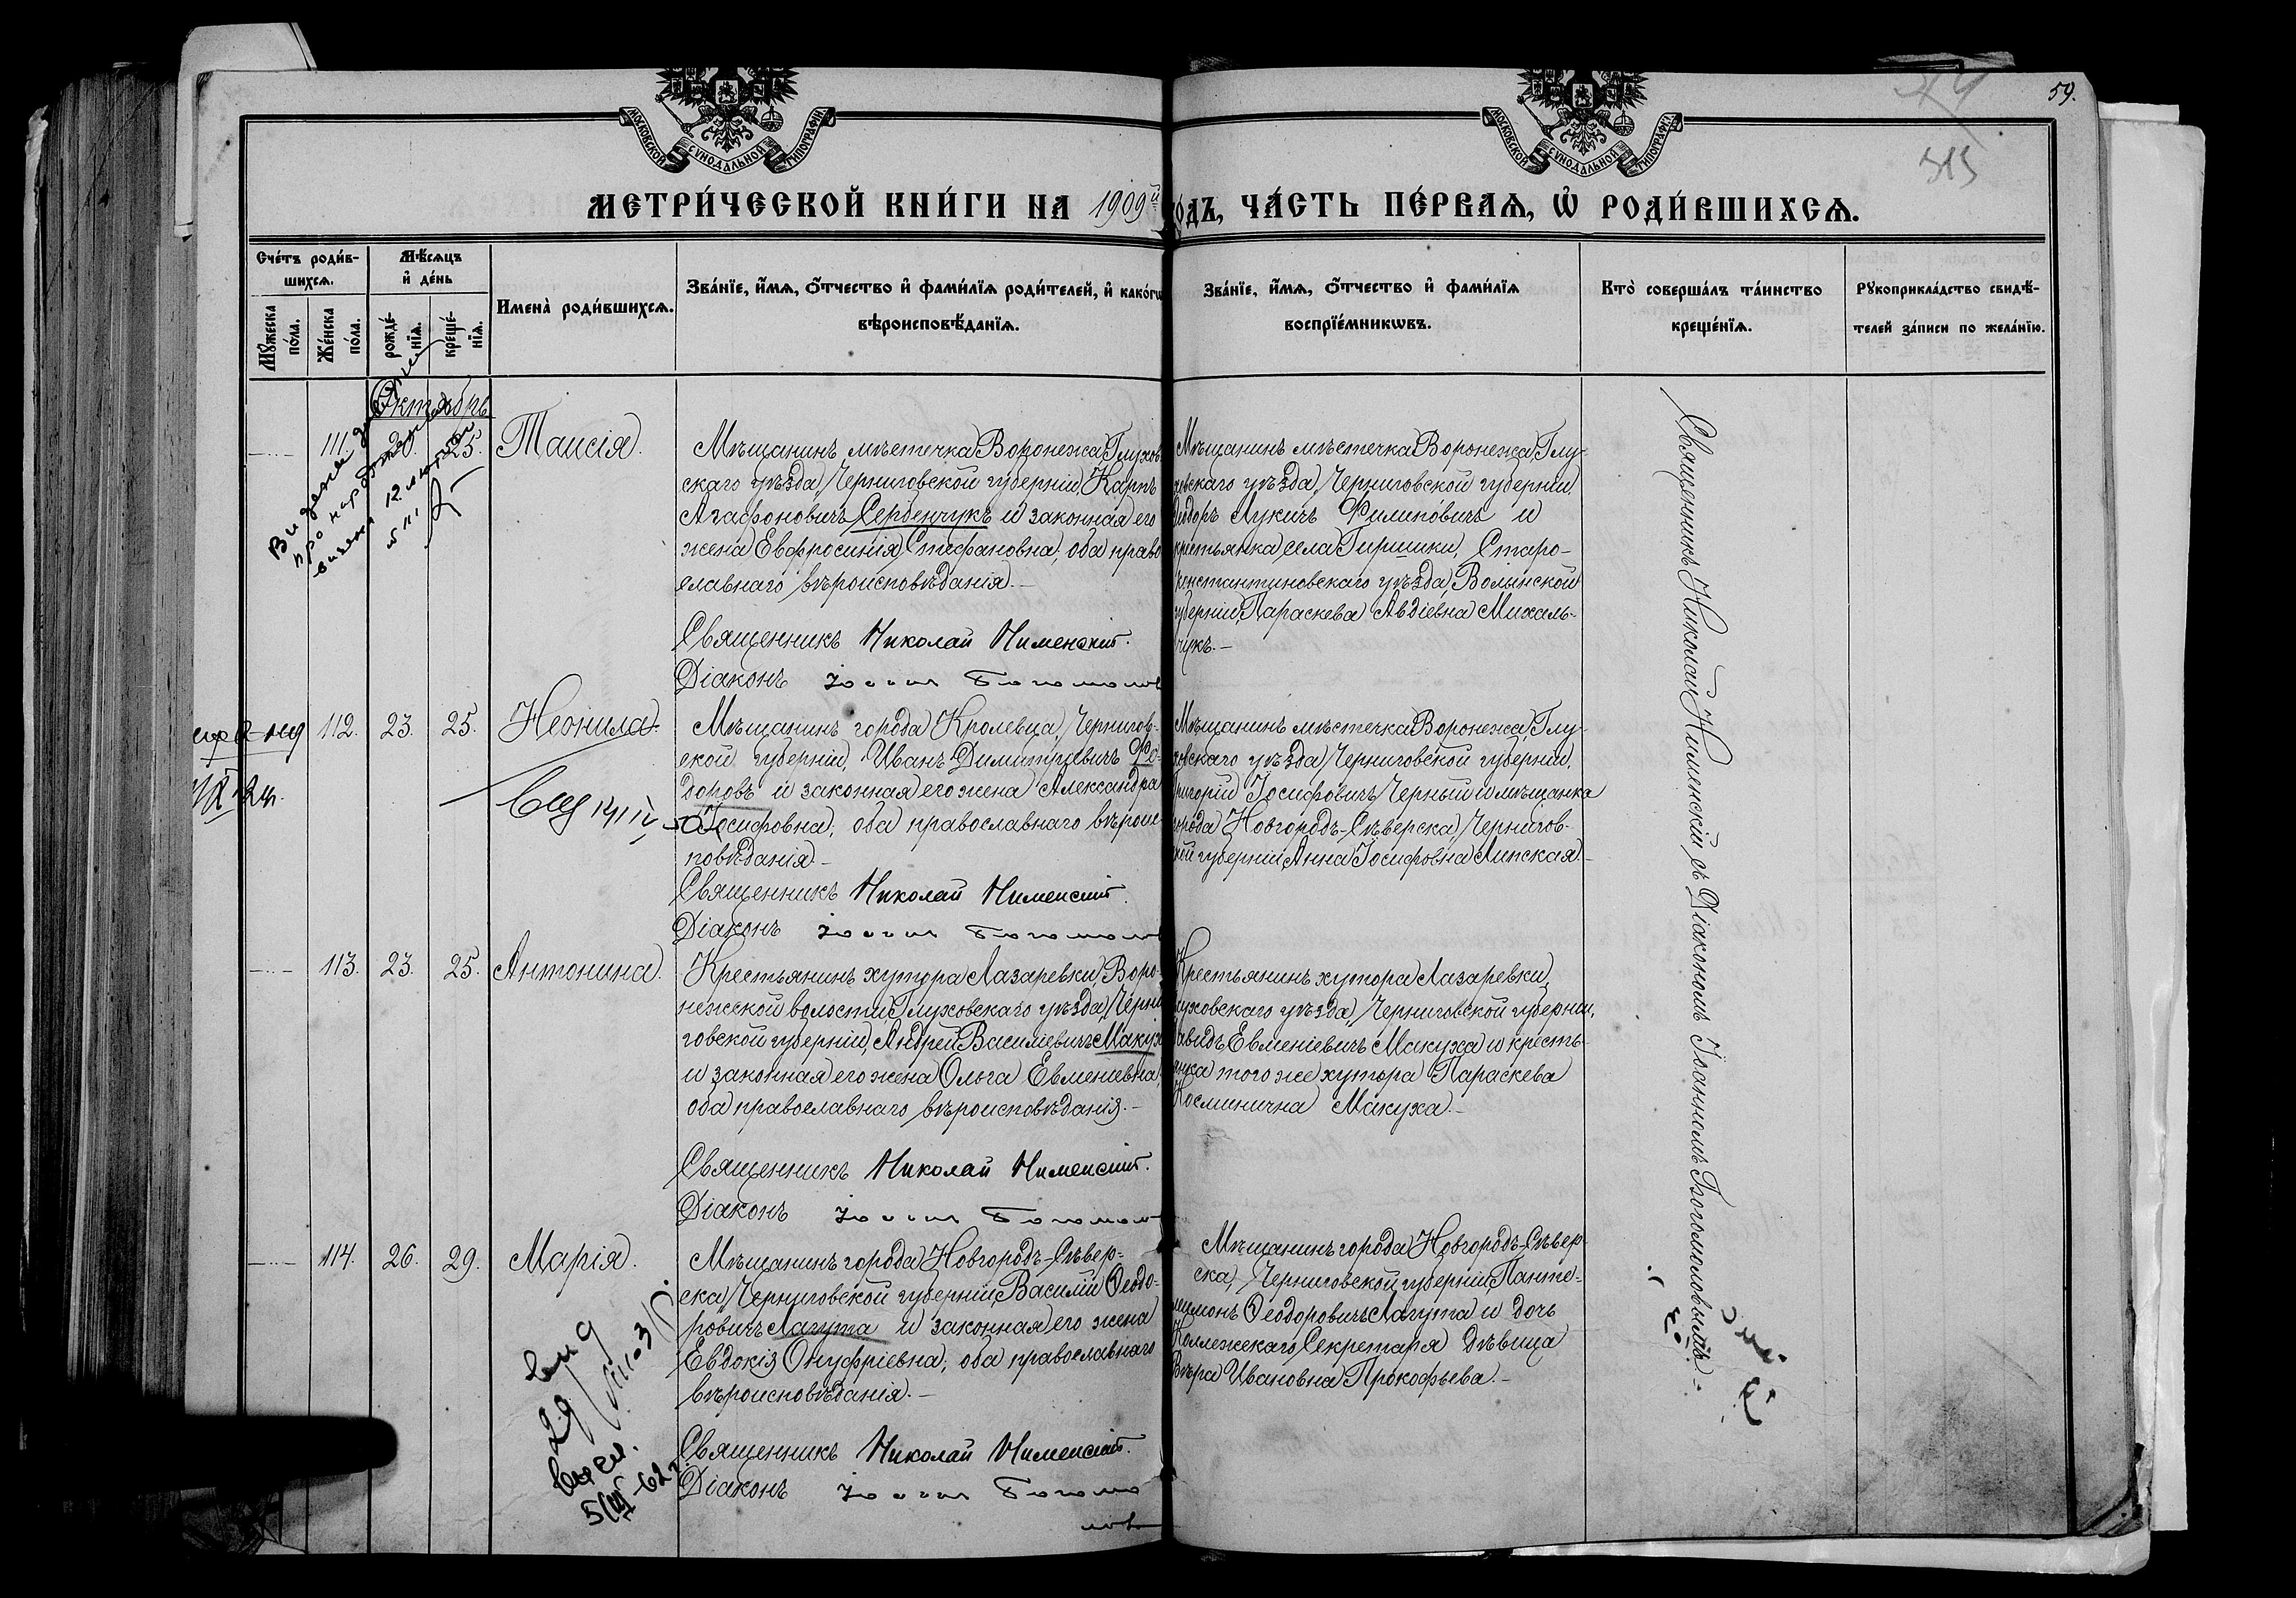 59.
МОСКОВСКОЙ СУНОДАЛЬНОЙ ТИПОГРАФІИ
МОСКОВСКОЙ СУНОДАЛЬНОЙ ТИПОГРАФІ
313
МЕТРИ́ЧЕСКОЙ КНИ́ГИ НА 1909й
о́дъ, ЧА́СТЬ ПЕ́РВАѦ, Ѡ РОДИ́ВШИХСѦ.
Сче́тъ роди́в-
шихсѧ.
Мꙋжеска по́ла.
Же́нска по́ла.
Мѣ́сѧцъ
и҆ де́нь
рожде́-
нїѧ.
креще́-
нїѧ.
Имена̀ роди́вшихсѧ.
Зва́нїе, и҆́мѧ, ѻ҆́тчество и҆ фами́лїѧ роди́телей, и҆ како́гѡ
вѣроисповѣ́данїѧ.
Зва́нїе, и҆́мѧ, ѻ҆́тчество и҆ фами́лїѧ
воспрїе́мникѡвъ.
Кто̀ соверша́лъ та́инство
креще́нїѧ.
Рꙋкоприкла́дство свидѣ́-
телей за́писи по жела́нїю.
Октябрь
111. 20. 25. Таисія.
Мѣщанинъ мѣстечка Воронежа, Глухов-
скаго уѣзда, Черниговской губерніи, Карпъ
Агафоновичъ Серденчукъ и законная его
жена Евфросинія Стефановна, оба право
славнаго вѣроисповѣданія.–
Священникъ Николай Нименскій.
Діаконъ Іоанн Богомолов
Мѣщанинъ мѣстечка Воронежа, Глу-
ховскаго уѣзда, Черниговской губерніи,
Ѳеодоръ Лукичъ Филиповичъ и
крестьянка села Гиршики, Старо-
константиновскаго уѣзда, Волынской
губерніи, Параскева Авдіевна Михаль-
чукъ.–
112. 23. 25. Неонила.
Мѣщанинъ города Кролевца, Чернигов-
ской губерніи, Иванъ Димитріевичъ Фе-
доровъ и законная его жена Александра
Іосифовна, оба православнаго вѣроис
повѣданія.–
Священникъ Николай Нименскій.
Діаконъ Іоанн Богомолов
Мѣщанинъ мѣстечка Воронежа, Глу-
ховскаго уѣзда, Черниговской губерніи,
Григорій Іосифовичъ Черный и мѣщанка
города Новгородъ-Сѣверска, Чернигов-
ской губерніи, Анна Іосифовна Липская.–
113. 23. 25. Антонина.
Крестьянинъ хутора Лазаревки, Воро-
нежской волости, Глуховскаго уѣзда, Черни
говской губерніи, Андрей Василіевичъ Макух
и законная его жена Ольга Евменіевна,
оба православнаго вѣроисповѣданія.–
Священникъ Николай Нименскій.
Діаконъ Іоанн Богомолов
Крестьянинъ хутора Лазаревки,
Глуховскаго уѣзда, Черниговской губерніи,
Давидъ Евменіевичъ Макуха и кресть-
янка того же хутора Параскева
Косминична Макуха.–
114. 26. 29. Марія.
Мѣщанинъ города Новгородъ-Сѣвер-
ска, Черниговской губерніи, Василій Ѳеодо-
ровичъ Лагута и законная его жена
Евдокія Онуфріевна, оба православнаго
вѣроисповѣданія.–
Священникъ Николай Нименскій.
Діаконъ Іоанн Богомо
лов
Мѣщанинъ города Новгородъ-Сѣвер-
ска, Черниговской губерніи, Панте-
леимонъ Ѳеодоровичъ Лагута и дочь
Коллежскаго Секретаря дѣвица
Вѣра Ивановна Прокофьева.–
Священникъ Николай Нименскій съ Діакономъ Іоанномъ Богомоловымъ.–